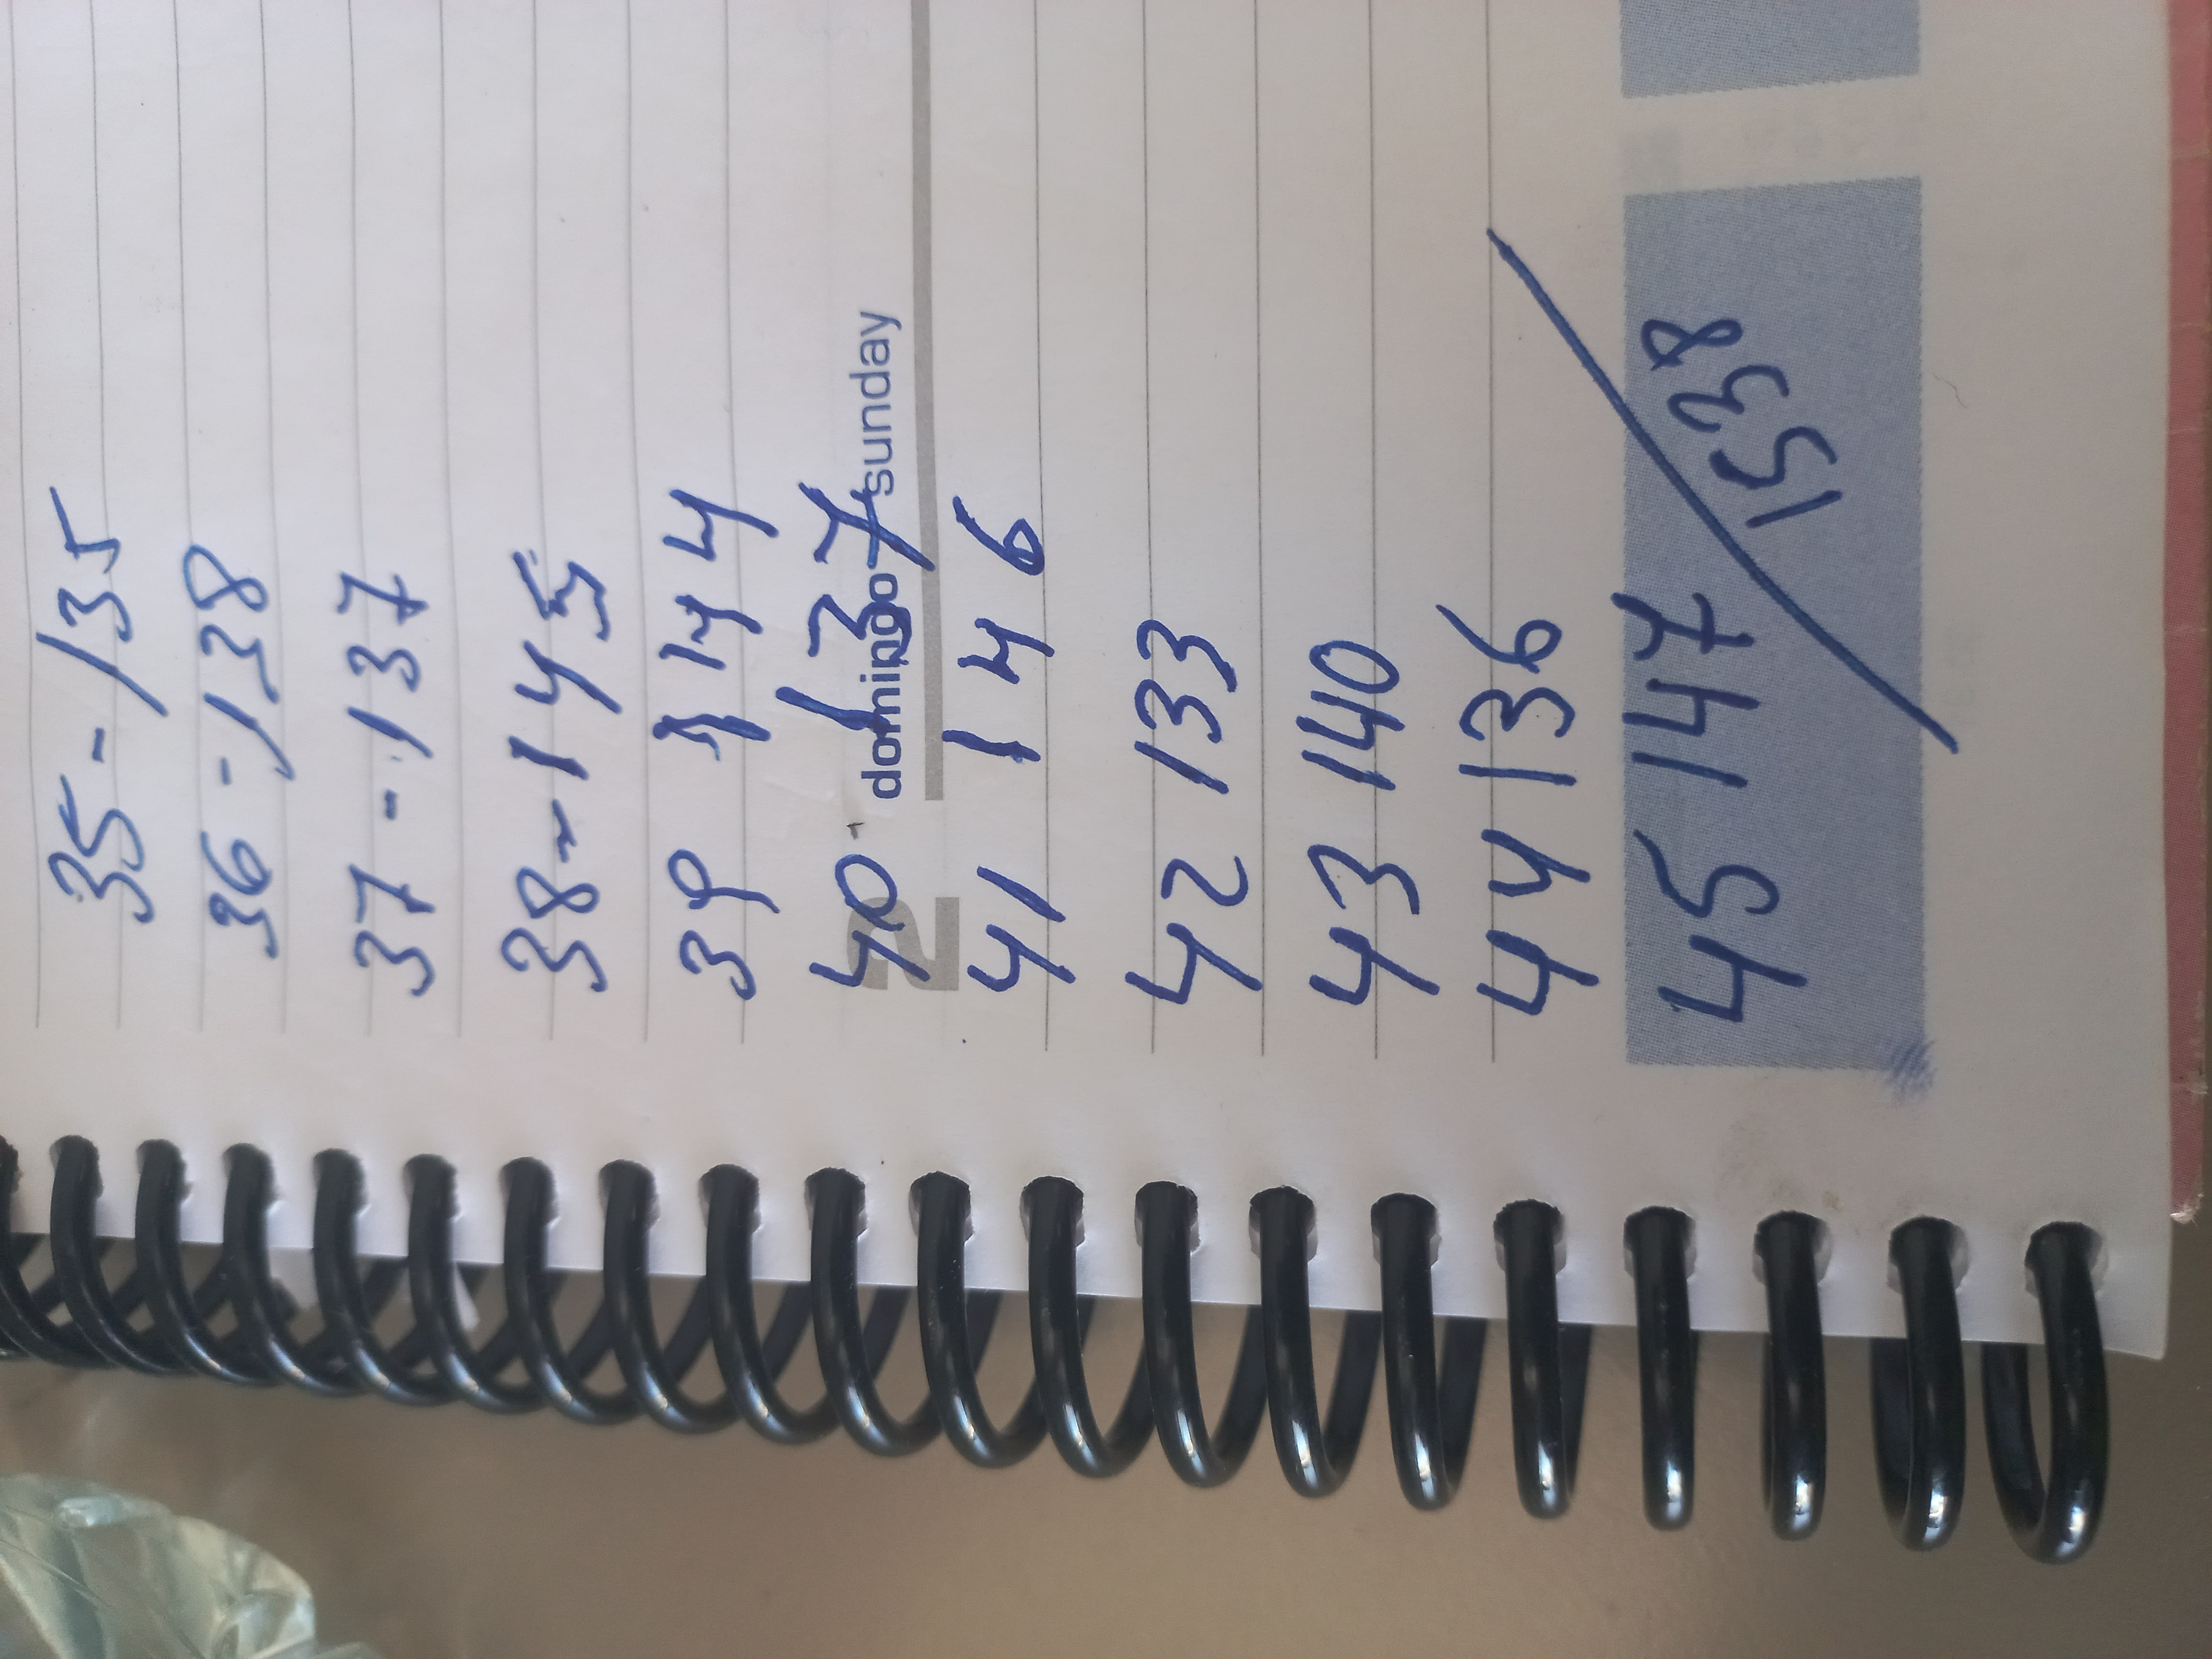 35 - 135
36 - 138
37 - 137
38 - 145
39 144
40 - 137
domingo sunday
2
41 146
42 133
43 140
44 136
45 147
1538